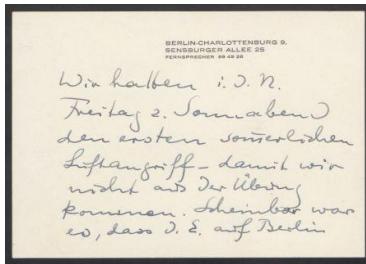 BERLIN-CHARLOTTENBURG 9,
SENSBURGER ALLEE 25
FERNSPRECHER 99 49 26
Wir hatten i. d. N.
Freitag z. Sonnabend
den ersten sommerlichen
Luftangriff – damit wir
nicht aus der Übung
kommen. Scheinbar war
es, dass d. E. auf Berlin